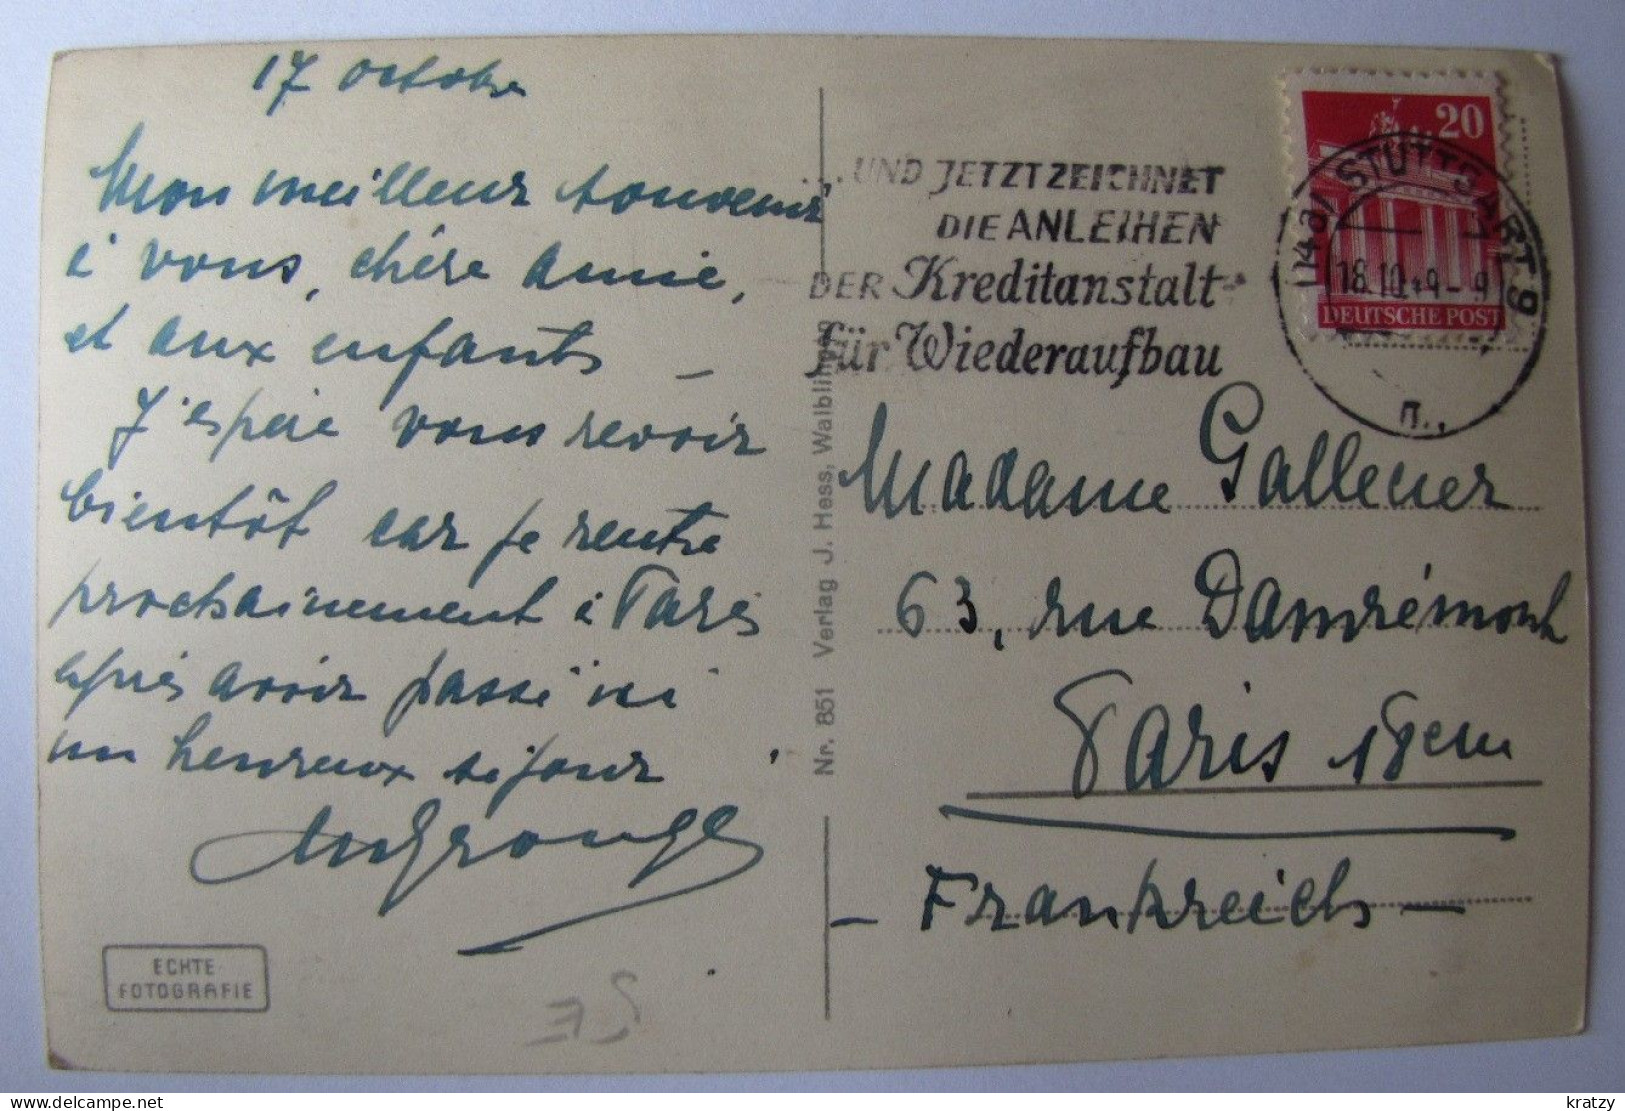 17 octobre
Mon meilleur souvenir
à vous, chère amie,
et aux enfants –
J'espère vous revoir
bientôt car je rentre
prochainement à Paris
après avoir passé ici
un heureux séjour
ECHTE
FOTOGRAFIE
Nr. 851 Verlag J. Hess, Waiblingen
... UND JETZT ZEICHNET
DIE ANLEIHEN
DER Kreditanstalt
für Wiederaufbau
20
DEUTSCHE POST
(14a) STUTTGART 9
18.10.49-9
Madame
63, rue Damrémont
Paris 18em
– Frankreich –
kratzy